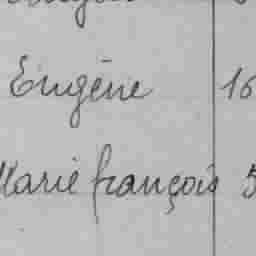 Eugène 16
Marie françois 5